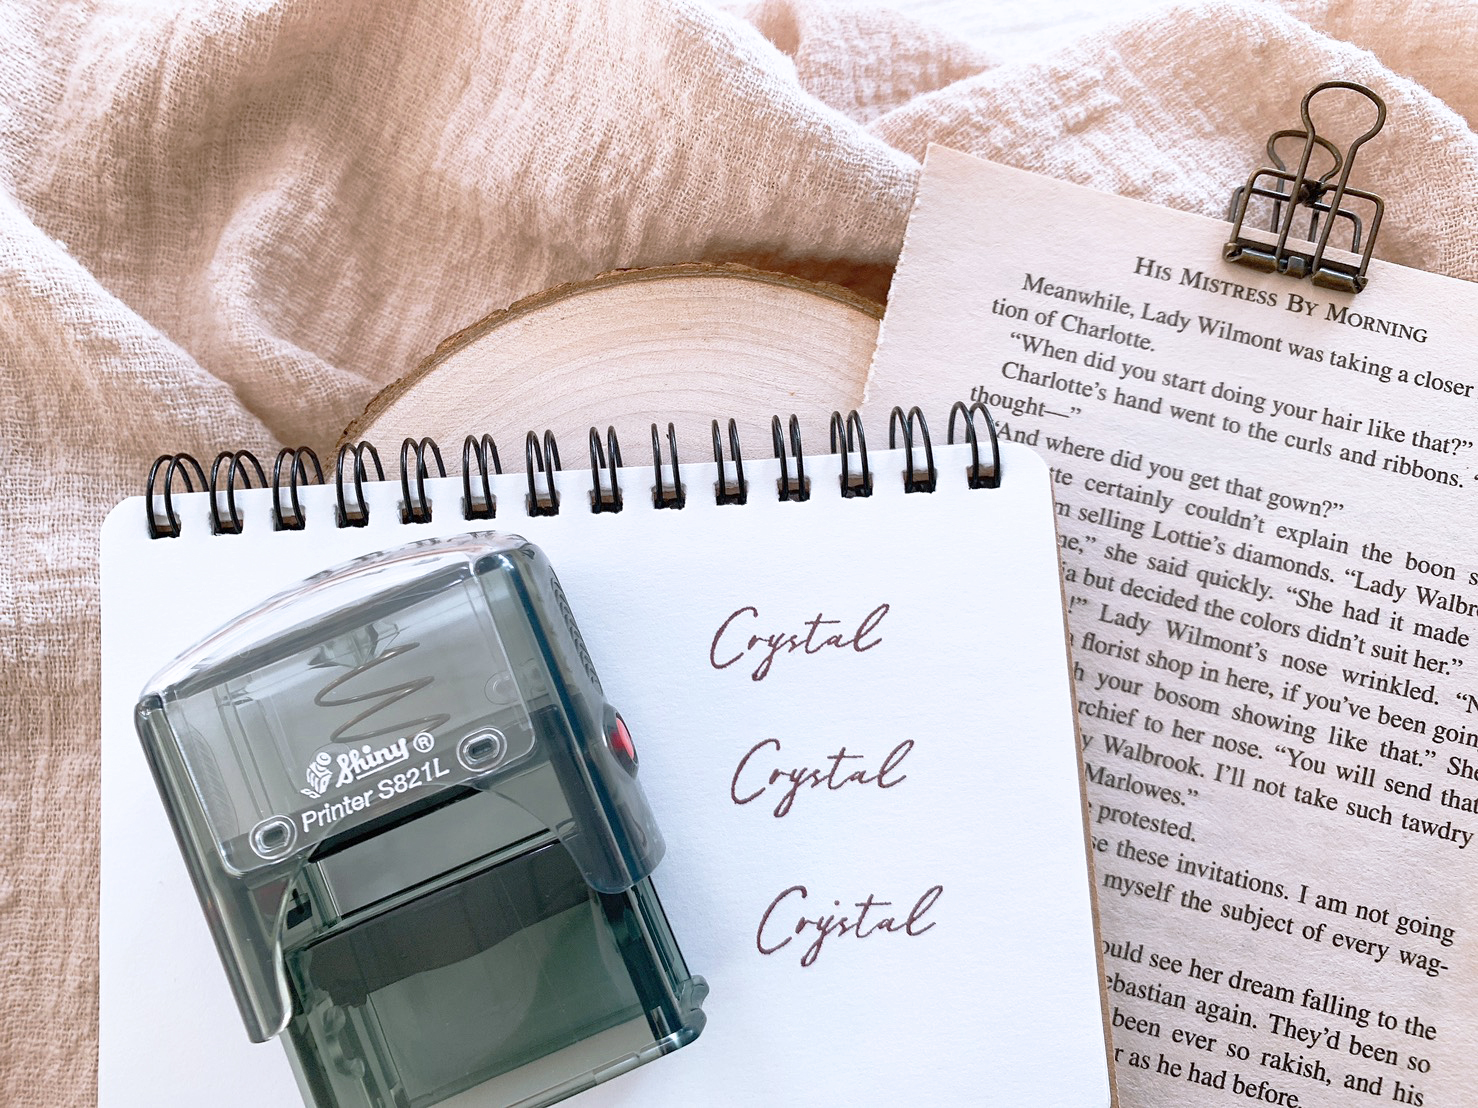 Shiny ®
Printer S821L
Crystal
Crystal
Crystal
HIS MISTRESS BY MORNING
Meanwhile, Lady Wilmont was taking a closer
tion of Charlotte.
“When did you start doing your hair like that?”
Charlotte’s hand went to the curls and ribbons. “
thought—”
“And where did you get that gown?”
certainly couldn’t explain the boon
selling Lottie’s diamonds. “Lady
she said quickly. “She had it made
but decided the colors didn’t suit her.”
!” Lady Wilmont’s nose wrinkled.
florist shop in here, if you’ve been
your bosom showing like that.”
to her nose. “You will send that
Walbrook. I’ll not take such tawdry
Marlowes.”
protested.
these invitations. I am not going
myself the subject of every wag-
see her dream falling to the
again. They’d been so
been ever so rakish, and his
as he had before.